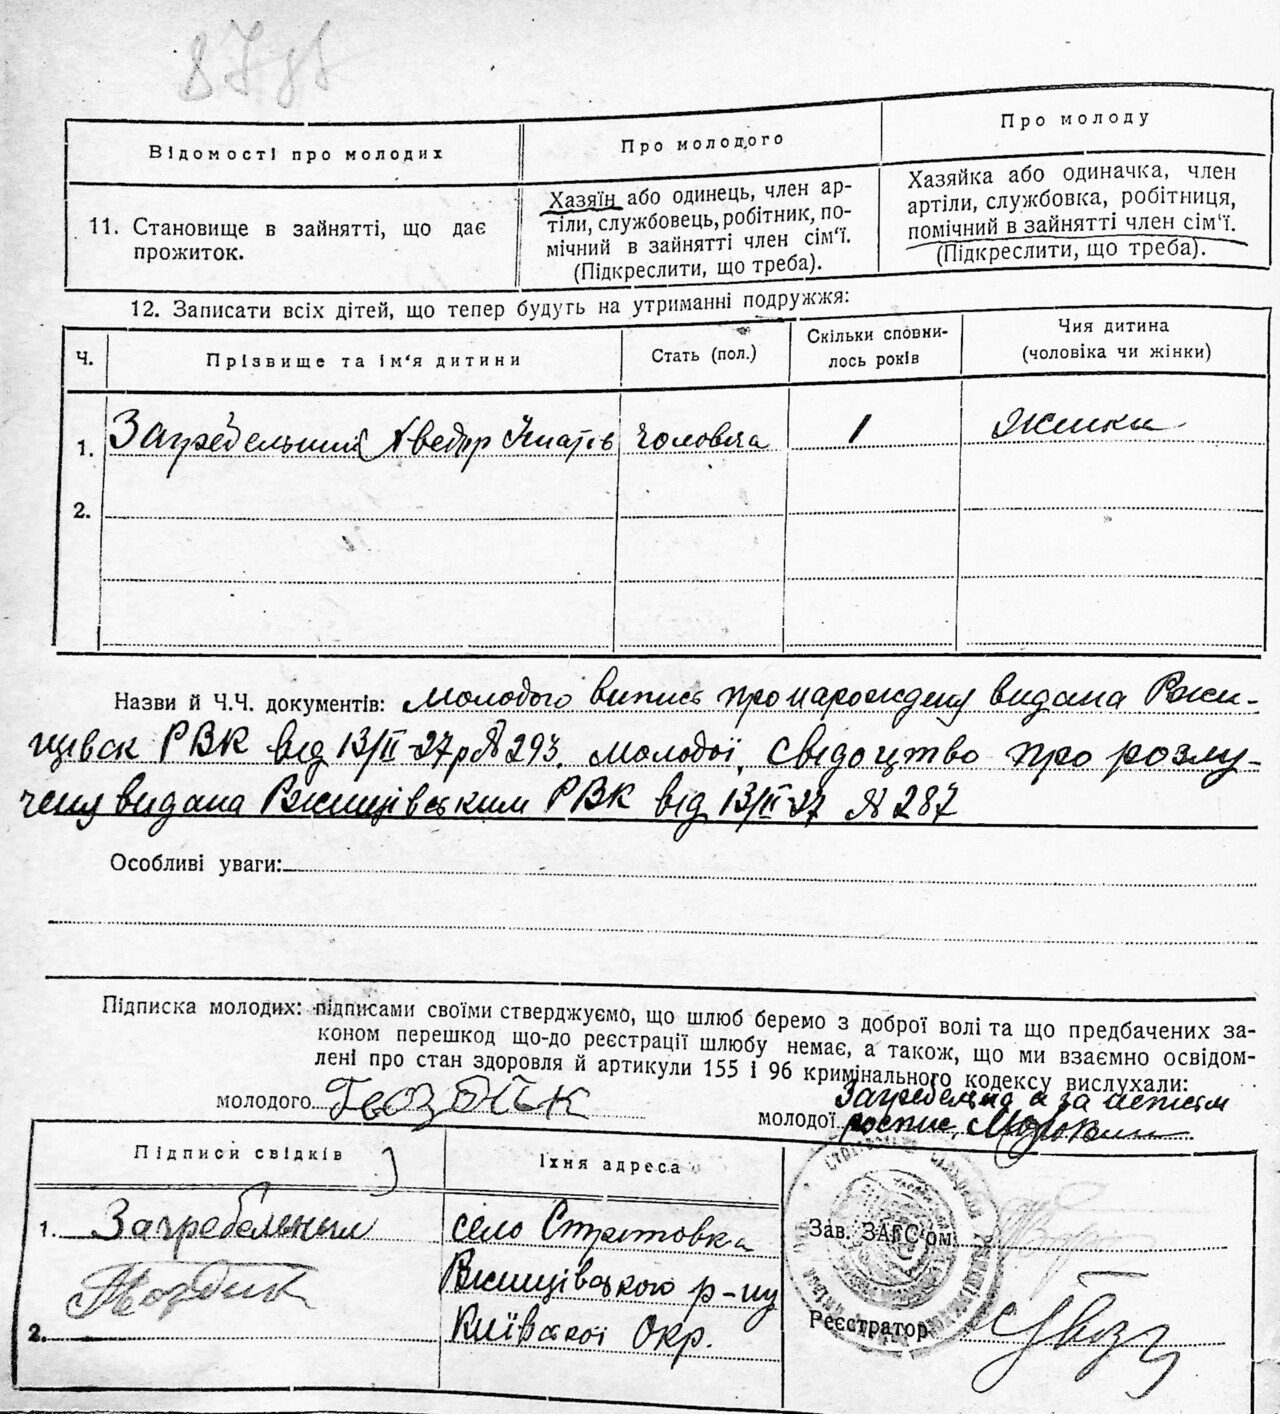 Відомості про молодих
Про молодого
Про молоду
11. Становище в зайнятті, що дає
прожиток.
Хазяїн або одинець, член ар-
тіли, службовець, робітник, по-
мічний в зайнятті член сім'ї.
(Підкреслити, що треба).
Хазяйка або одиначка, член
артіли, службовка, робітниця,
помічний в зайнятті член сім'ї.
(Підкреслити, що треба).
12. Записати всіх дітей, що тепер будуть на утриманні подружжя:
Ч.
Прізвище та ім'я дитини
Стать (пол.)
Скільки сповни-
лось років
Чия дитина
(чоловіка чи жінки)
1. Загребельний Ігнатів чоловіча 1 жинки
2.
Назви й Ч.Ч. документів: молодого випись про нарождену видана Ржи-
щівск РВК від 13/II-27р № 293. молодої, свідоцтво про розлу-
чену видана Ржищівським РВК від 13/II-27 № 287
Особливі уваги:
Підписка молодих: підписами своїми стверджуємо, що шлюб беремо з доброї волі та що предбачених за-
коном перешкод що-до реєстрації шлюбу немає, а також, що ми взаємно освідом-
лені про стан здоровля й артикули 155 і 96 кримінального кодексу вислухали:
молодого Гвоздик
Загребельна а за
молодої роспис.
Підписи свідків
Їхня адреса
1. Загребельный
село Стрітовка
Гвоздик
Ржищівського р-ну
2.
Київської Окр.
Зав. ЗАГС'ом
Реєстратор